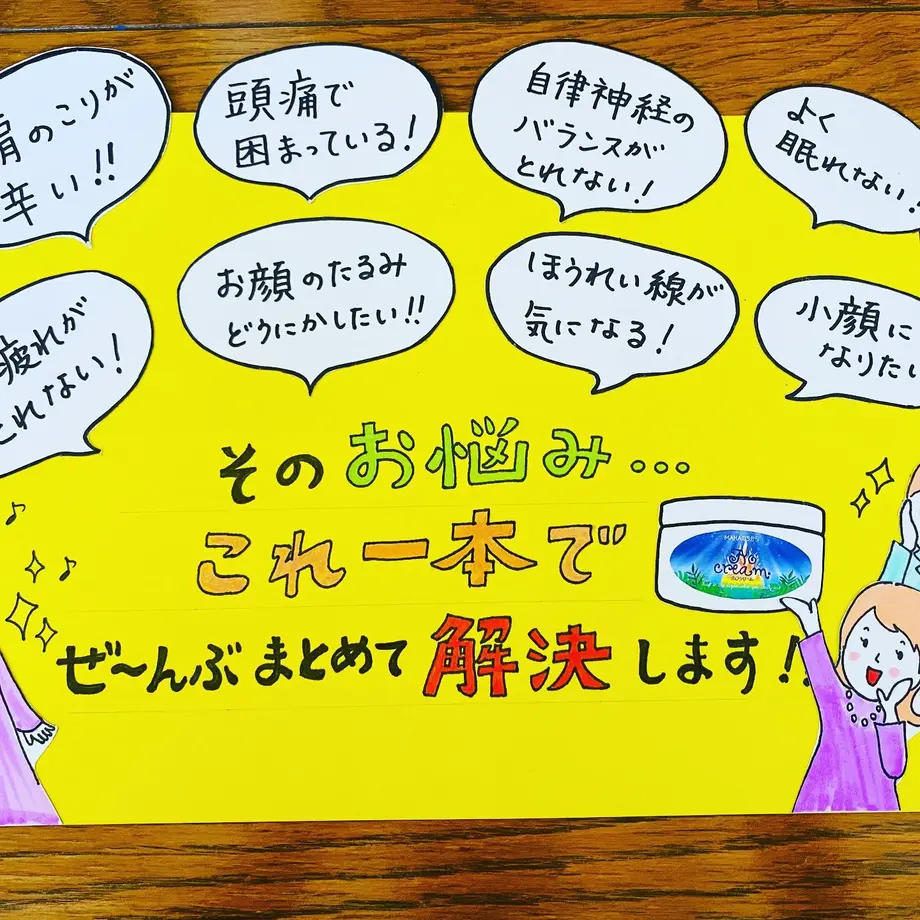 肩のこりが
辛い!!
頭痛で
困まっている!
自律神経の
バランスが
とれない!
よく
眠れない!
疲れが
とれない!
お顔のたるみ
どうにかしたい!!
ほうれい線が
気になる!
小顔に
なりたい
そのお悩み…
これ一本で
ぜ〜んぶまとめて解決します!!
cream